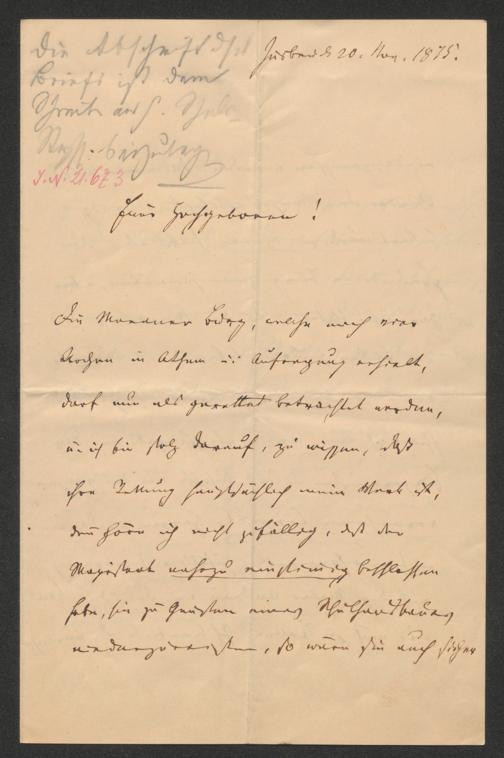 Die Abschrift des
Briefs ist dem
Schreiben
beizulegen
I.N. 21.673
Innsbruck 20. Nov. 1875.
Euer Hochgeboren!
Die Meraner Burg, welche noch vier
Wochen in Athem u: Aufregung erhielt,
darf nun als gerettet betrachtet werden,
u: ich bin stolz darauf, zu wissen, daß
ihre Rettung hauptsächlich mein Werk ist,
denn höre ich nicht zufällig, daß der
Magistrat nahezu einstimmig beschlossen
habe, sie zu Gunsten eines Schulhausbaues
niederzureißen, so wäre sie auch sicher